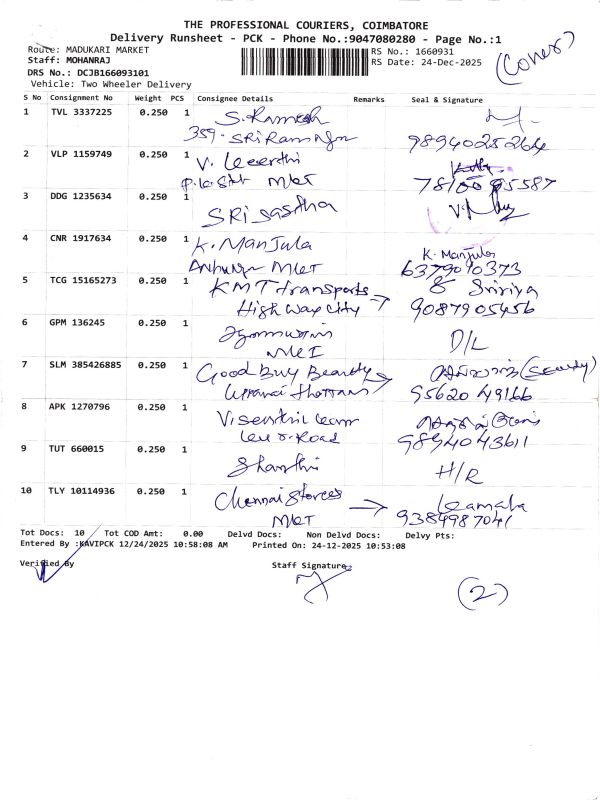 THE PROFESSIONAL COURIERS, COIMBATORE
Delivery Runsheet - PCK - Phone No.:9047080280 - Page No.:1
Route: MADUKARI MARKET
RS No.: 1660931
(Cover)
Staff: MOHANRAJ
RS Date: 24-Dec-2025
DRS No.: DCJB166093101
Vehicle: Two Wheeler Delivery
S No Consignment No Weight PCS Consignee Details Remarks Seal & Signature
1 TVL 3337225 0.250 1 S. Ramesh
359- SRi Ram Ngr 9894025264
2 VLP 1159749 0.250 1 V.
MKT
3 DDG 1235634 0.250 1 SRi sastha
4 CNR 1917634 0.250 1 K. Manjula K. Manjula
MKT 6379090373
5 TCG 15165273 0.250 1 KMT transports → & Sririya
High way city 9087905456
6 GPM 136245 0.250 1 D/L
MKT
7 SLM 385426885 0.250 1 Good Buy Beauty →
thottam 95620 49166
8 APK 1270796 0.250 1 V. senthil
Road 9894043611
9 TUT 660015 0.250 1 Shanthi H/R
10 TLY 10114936 0.250 1 Chennai Stores → Kamala
MKT 9384987041
Tot Docs: 10 Tot COD Amt: 0.00 Delvd Docs: Non Delvd Docs: Delvy Pts:
Entered By :KAVIPCK 12/24/2025 10:58:08 AM Printed On: 24-12-2025 10:53:08
Verified By Staff Signature
(2)